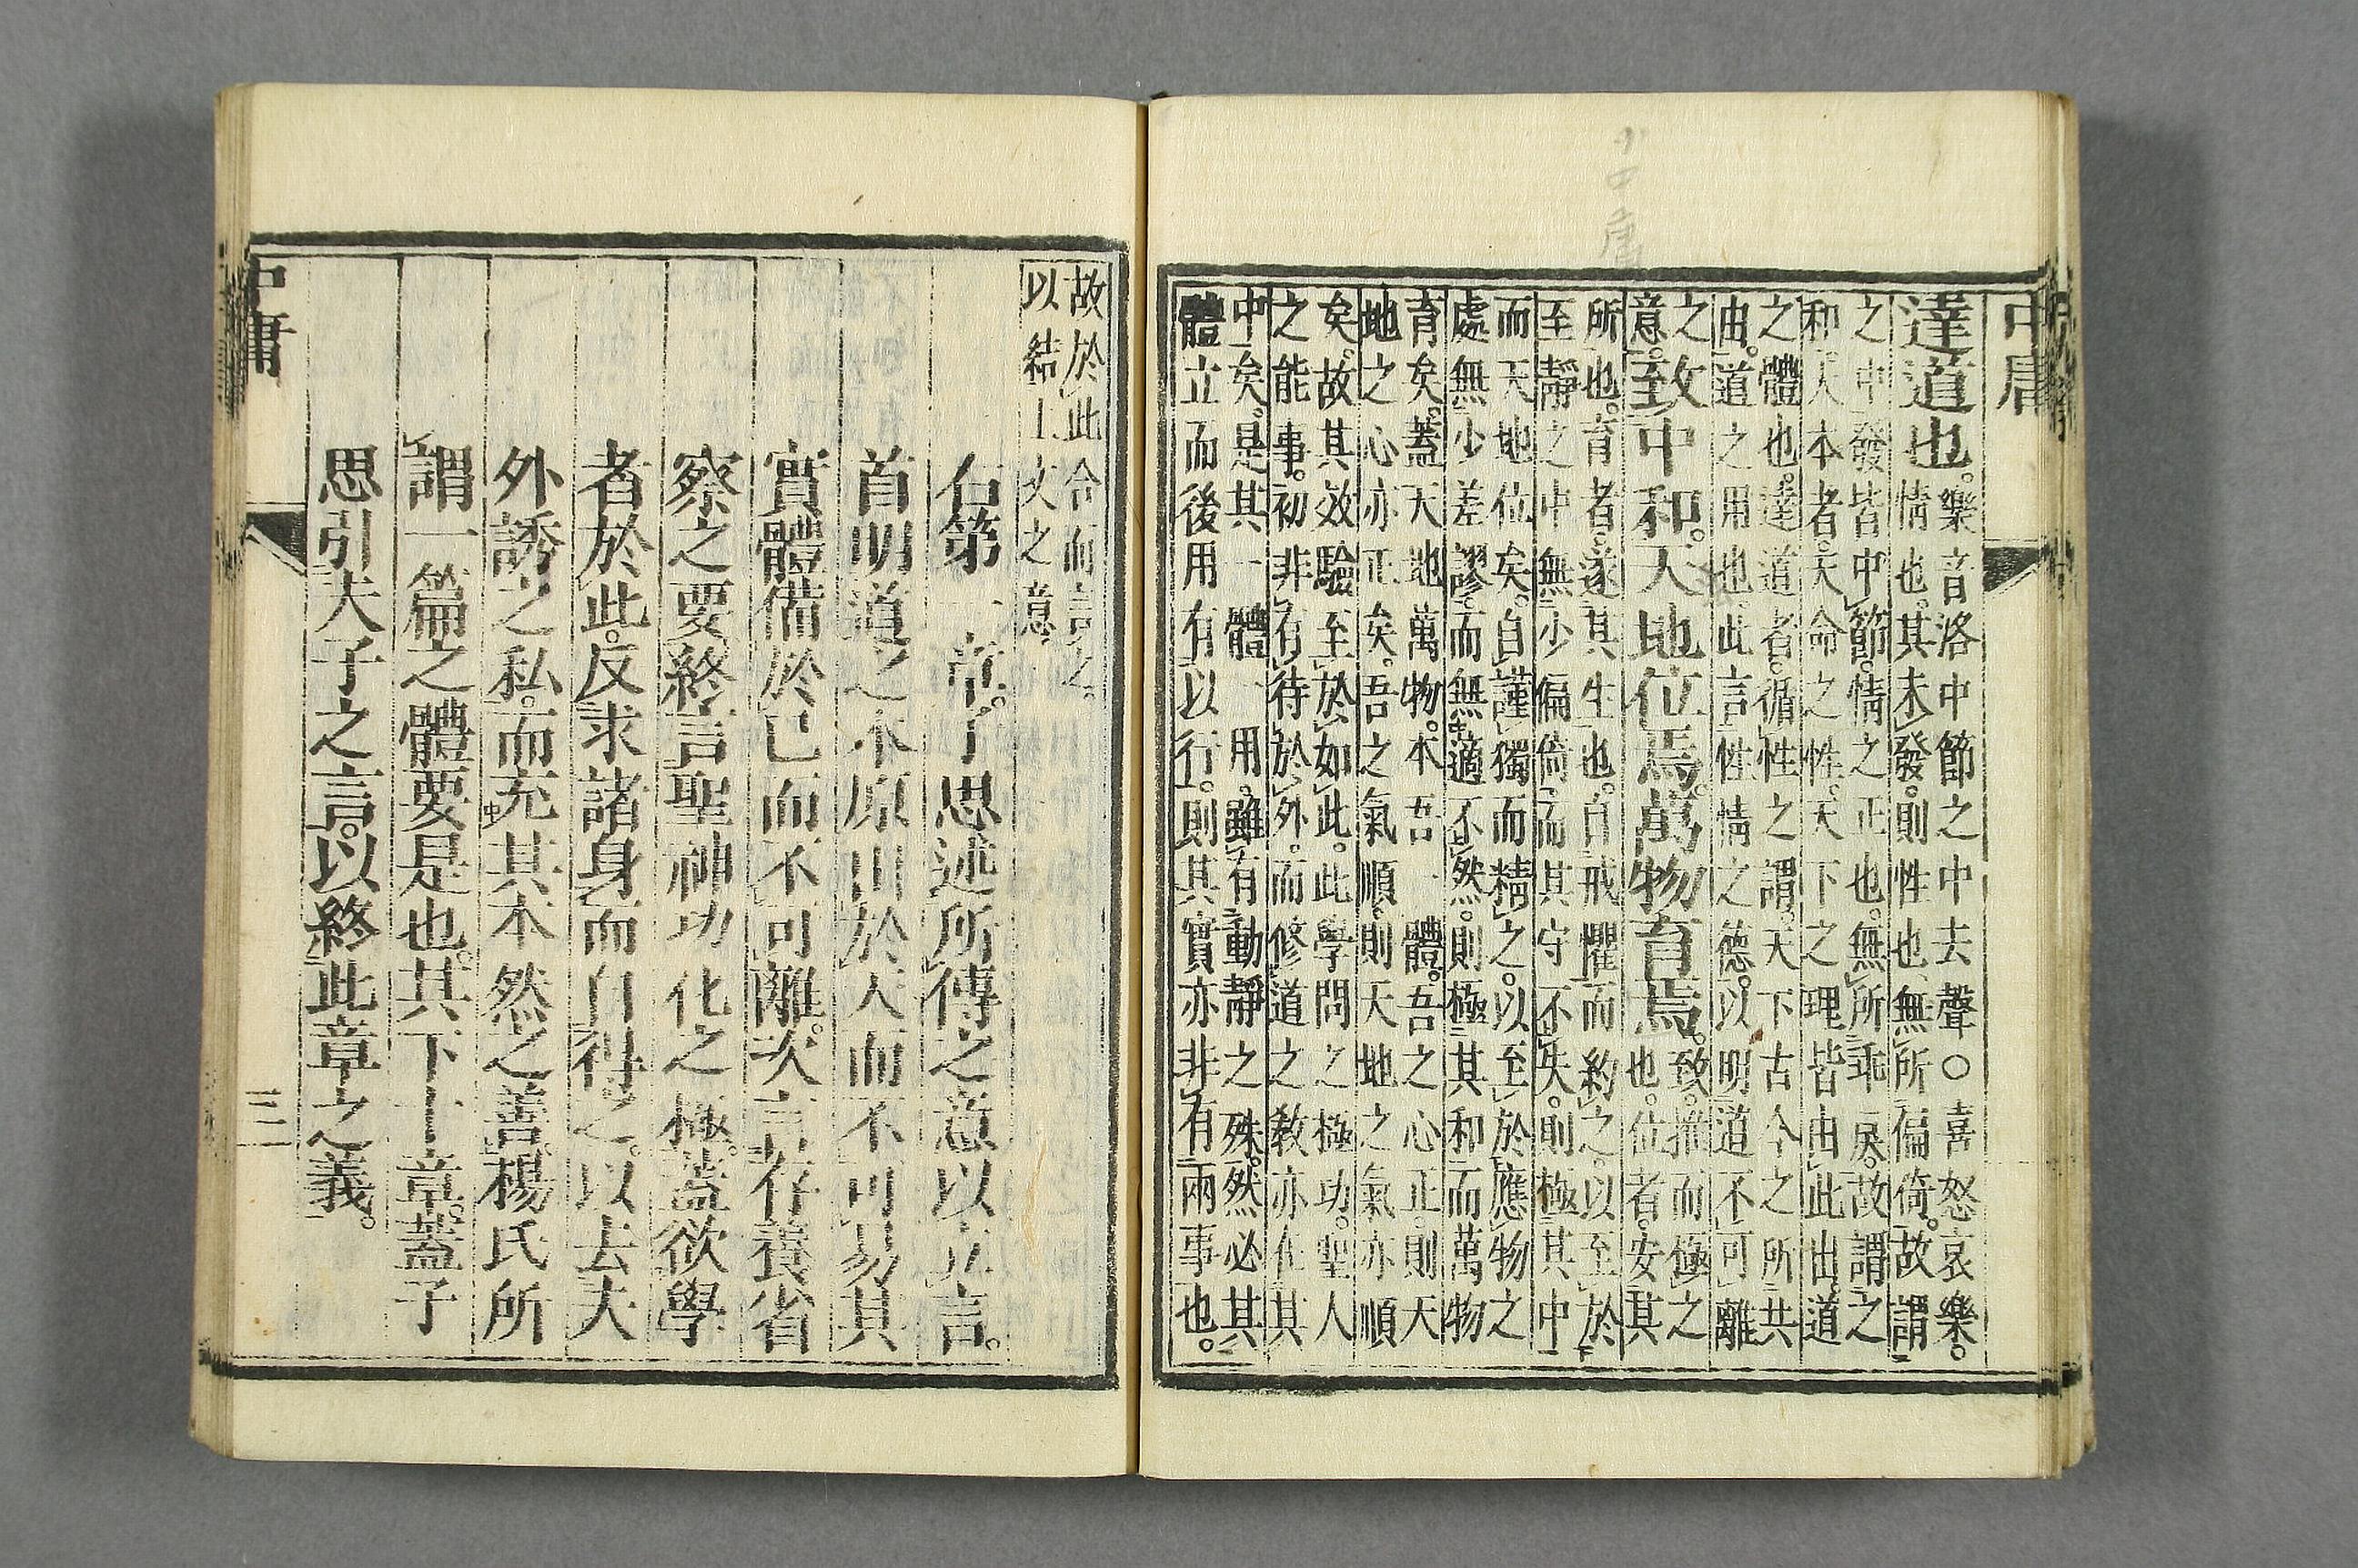 中庸
達道也。樂音洛中節之中去聲○喜怒哀樂。
情也。其未發。則性也、無所偏倚。故謂
之中發皆中節。情之正也。無所乖戾。故謂之
和。大本者。天命之性。天下之理皆由此出。道
之體也。達道者。循性之謂。天下古今之所共
由。道之用也。此言性情之德。以明道不可離
之
意。
致中和。天地位焉。萬物育焉。致。推而極之
也。位者。安其
所也。育者。遂其生也。自戒懼而約之。以至於
至靜之中無少偏倚。而其守不失。則極其中
而天地位矣。自謹獨而精之。以至於應物之
處無少差謬。而無適不然。則極其和而萬物
育矣。蓋天地萬物。本吾一體。吾之心正。則天
地之心亦正矣。吾之氣順。則天地之氣亦順
矣。故其效驗至於如此。此學問之極功。聖人
之能事。初非有待於外。而修道之教亦在其
中矣。是其一體一用。雖有動靜之殊。然必其
體立而後用有以行。則其實亦非有兩事也。
故於此合而言之。
以結上文之意。
右第一章。子思述所傳之意以立言。
首明道之本原出於天而不可易其
實體備於己而不可離。次言存養省
察之要終言聖神功化之極。蓋欲學
者於此。反求諸身而自得之。以去夫
外誘之私。而充其本然之善。楊氏所
謂一篇之體要是也。其下十章。蓋子
思引夫子之言。以終此章之義。
中庸
三